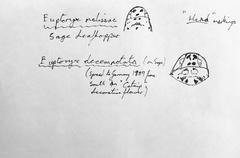 Eupteryx melissae
Sage leafhopper
"Head" markings
Eupteryx decemnotata (on Sage)
(Spread to Germany 1989 from
South on "Catnip"
decorative plants)